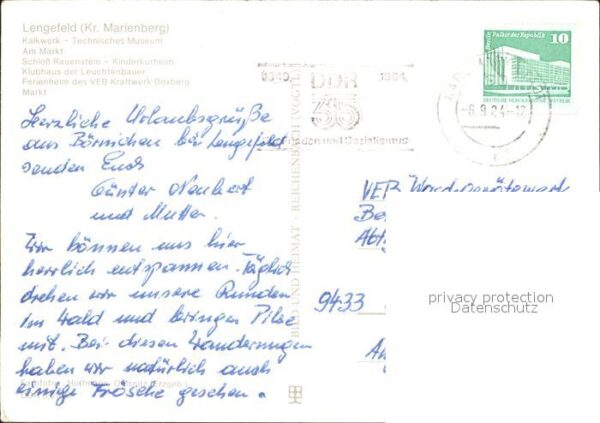 Lengefeld (Kr. Marienberg)
Kalkwerk - Technisches Museum
Am Markt
Schloß Rauenstein - Kinderkurheim
Klubhaus der Leuchtenbauer
Ferienheim des VEB Kraftwerk Boxberg
Markt
Berlin, Palast der Republik
10
DEUTSCHE DEMOKRATISCHE REPUBLIK
DDR
1984
35
und Sozialismus
-6.9.84-12
Herzliche Urlaubsgrüße
aus Börnichen bei Lengefeld
senden Euch
Günter Neubert
und Mutter.
Wir können uns hier
herrlich entspannen. Täglich
drehen wir unsere Runden
im Wald und bringen Pilze
mit. Bei diesen Wanderungen
haben wir natürlich auch
einige Frösche gesehen.
BILD UND HEIMAT · REICHENBACH (VOGTL
VEB
Be
Abt
9433
An
privacy protection
Datenschutz